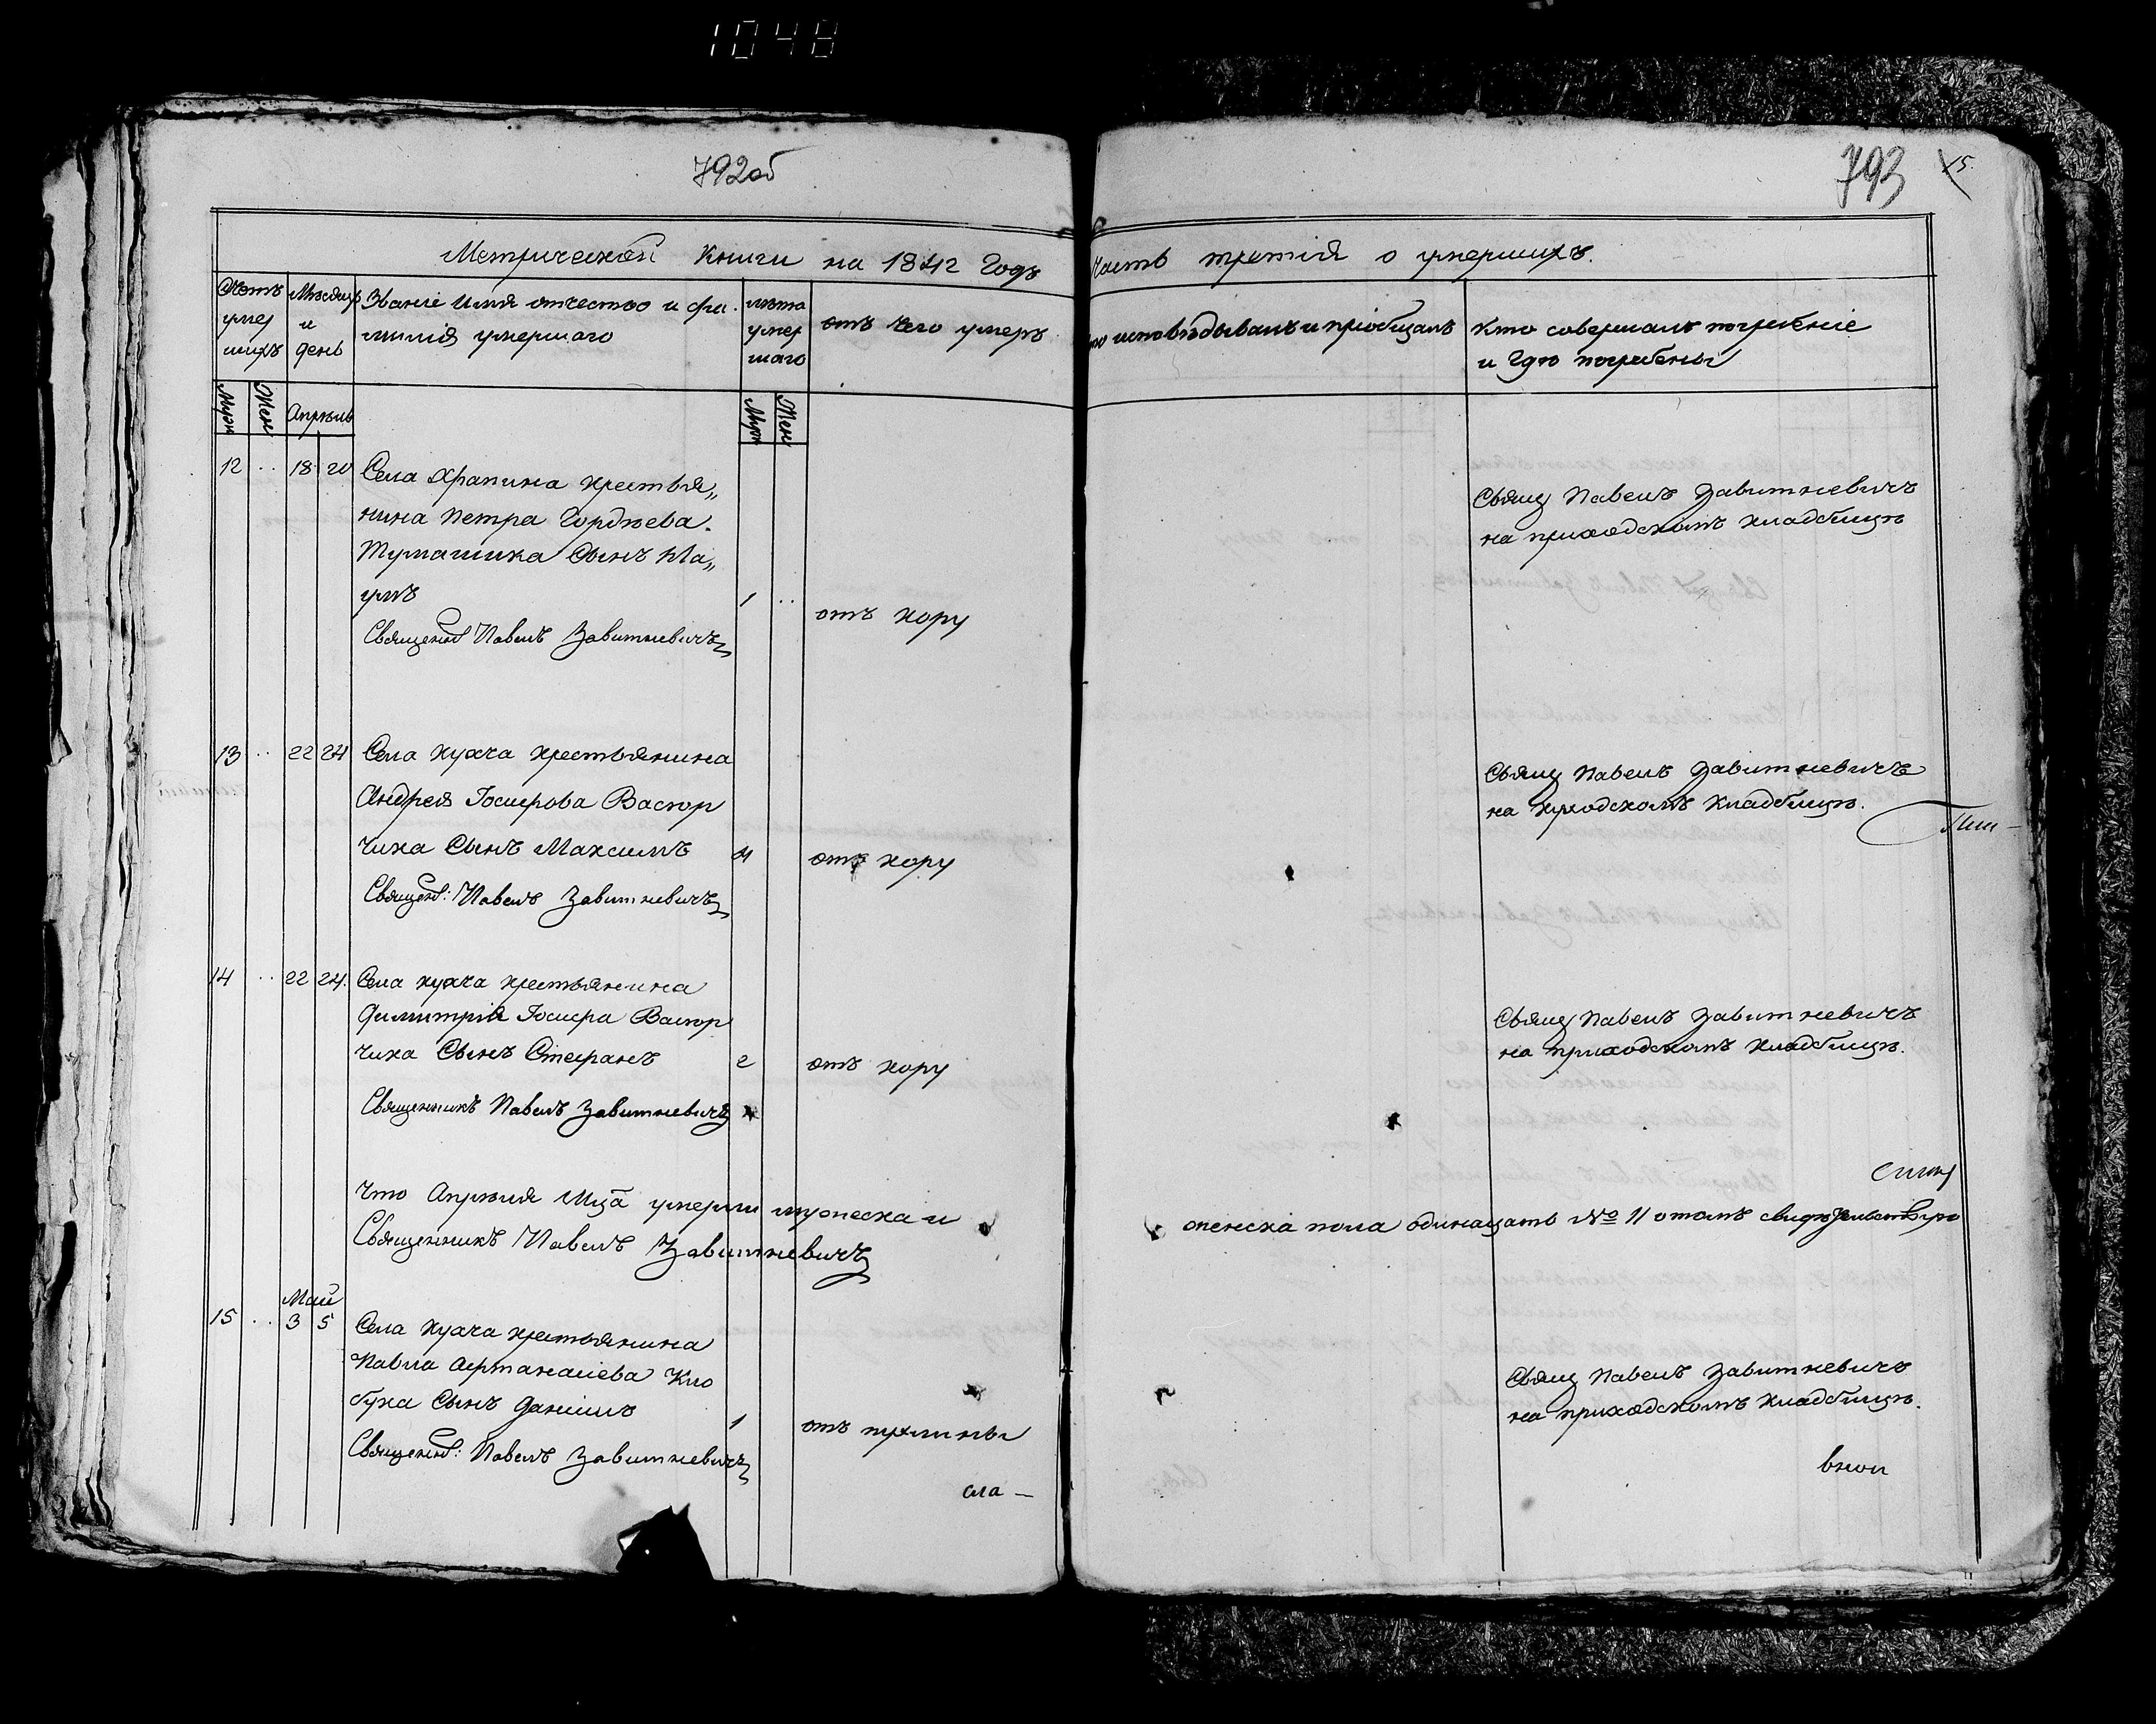 1048
792об
793
15.
Метрической Книги на 1842 Годъ Часть третія о умершихъ.
Счетъ умер шихъ
Мѣсяцъ и день
Званіе Имя отчество и фа.
милія умершаго
лѣта умер шаго
отъ чего умеръ
кто исповѣдывалъ и пріобщалъ
Кто совершалъ погребеніе
и гдѣ погребены
Муж Жен Апрѣль Муж Жен
12 .. 18 20 Села Храпина крестья„
нина Петра Гордѣева
Тумашика Сынъ На„
умъ 1 .. отъ кору
Священ: Павелъ Завитневичъ
Свящ Павелъ Завитневичъ
на приходскомъ кладбищѣ
13 .. 22 24 Села Кухча крестьянина
Андрея Іосифова Васюр
чика Сынъ Максимъ 4 отъ кору
Священ: Павелъ Завитневичъ
Свящ Павелъ Завитневичъ
на приходскомъ кладбищѣ.
14 .. 22 24. Села Кухча крестьянина
Димитрія Іосифа Васюр
чика Сынъ Стефанъ 2 отъ кору
Священникъ Павелъ Завитневичъ
Свящ Павелъ Завитневичъ
на приходскомъ кладбищѣ.
Что Апрѣля Мца умерли мужеска и женска пола одинацать № 11 отомъ свидѣтельствую
Священникъ Павелъ Завитневичъ
Май
15 .. 3 5 Села Кухча крестьянина
Павла Афтанасіева Кло
бука Сынъ Даніилъ 1 отъ пухлины
Священ: Павелъ Завитневичъ
Свящ Павелъ Завитневичъ
на приходскомъ кладбищѣ.
сла —